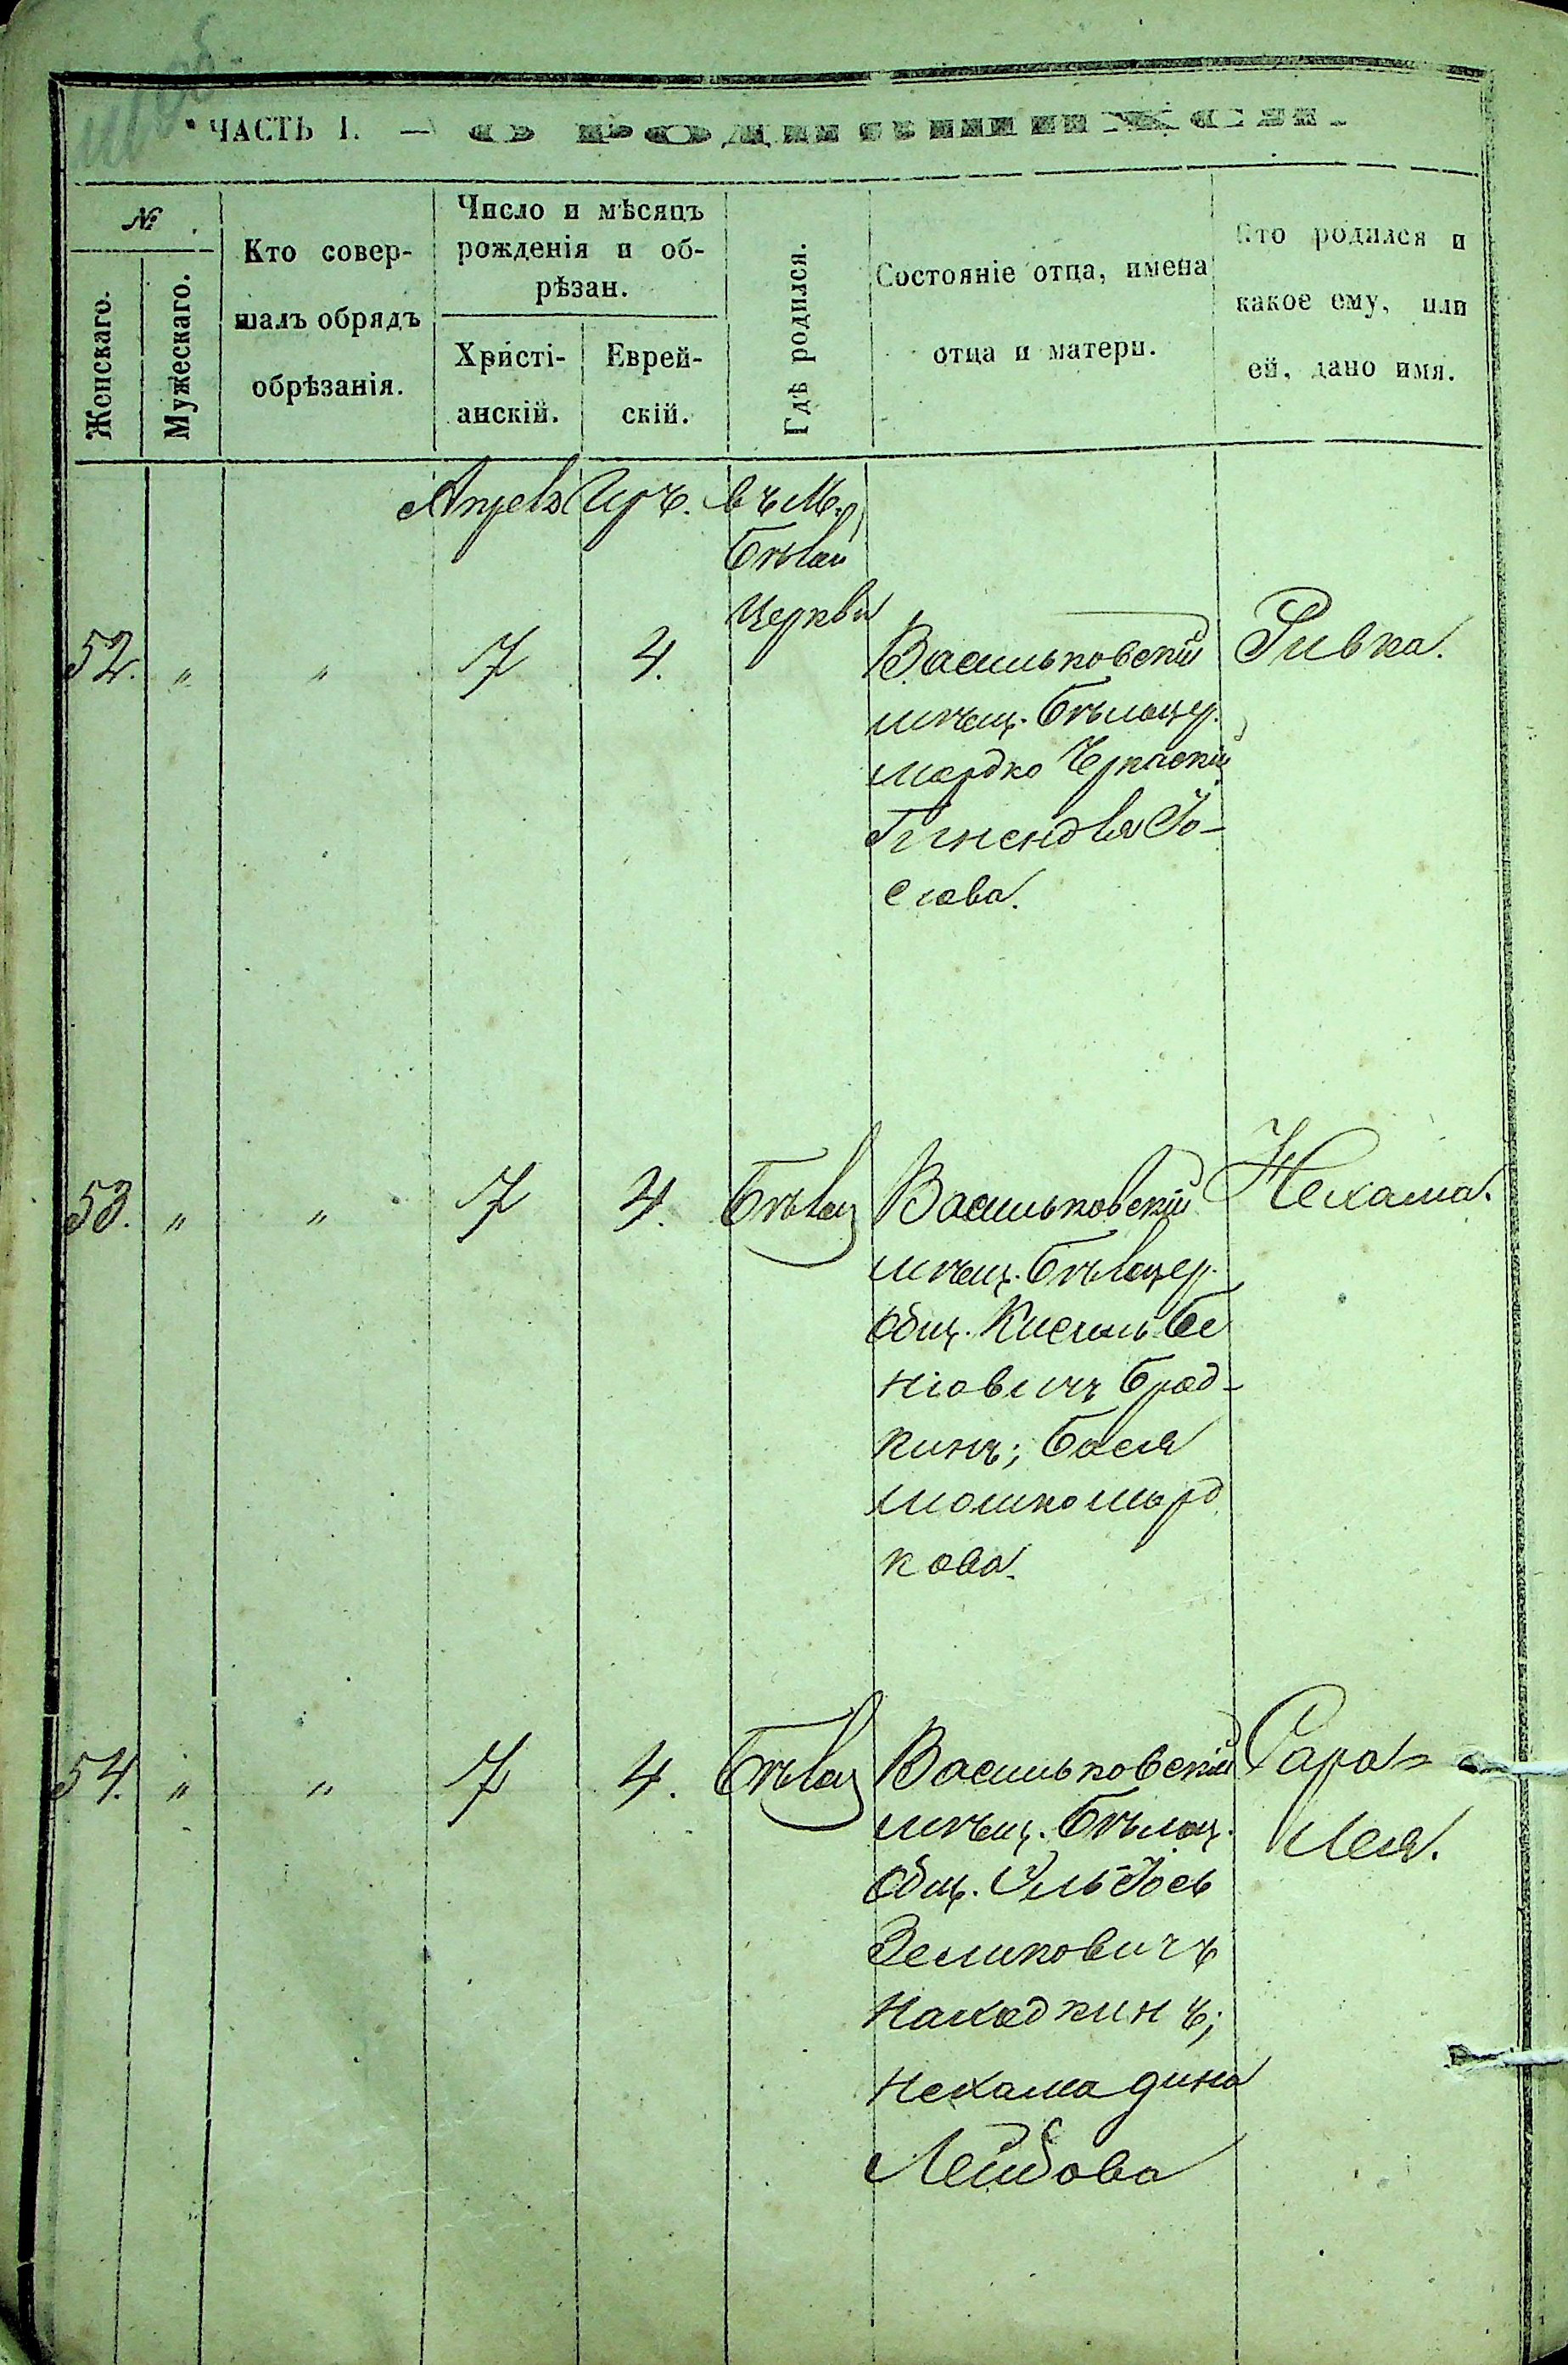 ЧАСТЬ I. — О РОДИВШИХСЯ.
№
Женскаго.
Мужескаго.
Кто совер-
шалъ обрядъ
обрѣзанія.
Число и мѣсяцъ
рожденія и об-
рѣзан.
Христі-
анскій.
Еврей-
скій.
Гдѣ родился.
Состояніе отца, имена
отца и матери.
Кто родился и
какое ему, или
ей, дано имя.
Апрель Иръ. въ М.
Бѣлой
Церкви
52. „ „ 7 4. Васильковскій Ривка.
мѣщ. Бѣлоцер.
Мордко Черкаскій
Гинендля Іо-
сіова.
53. „ „ 7 4. Бѣлоц Васильковскій Нехама.
мѣщ. Бѣлоцер.
Общ. Кисиль Бе
ніовичъ Брод-
кинъ; Бася
Мошко Морд
кова.
54. „ „ 7 4. Бѣлоц Васильковскій Сара-
мѣщ. Бѣлоц. Лея.
Общ. Эль-Іось
Зеликовичъ
Находкинъ;
Нехама Дина
Лейбова